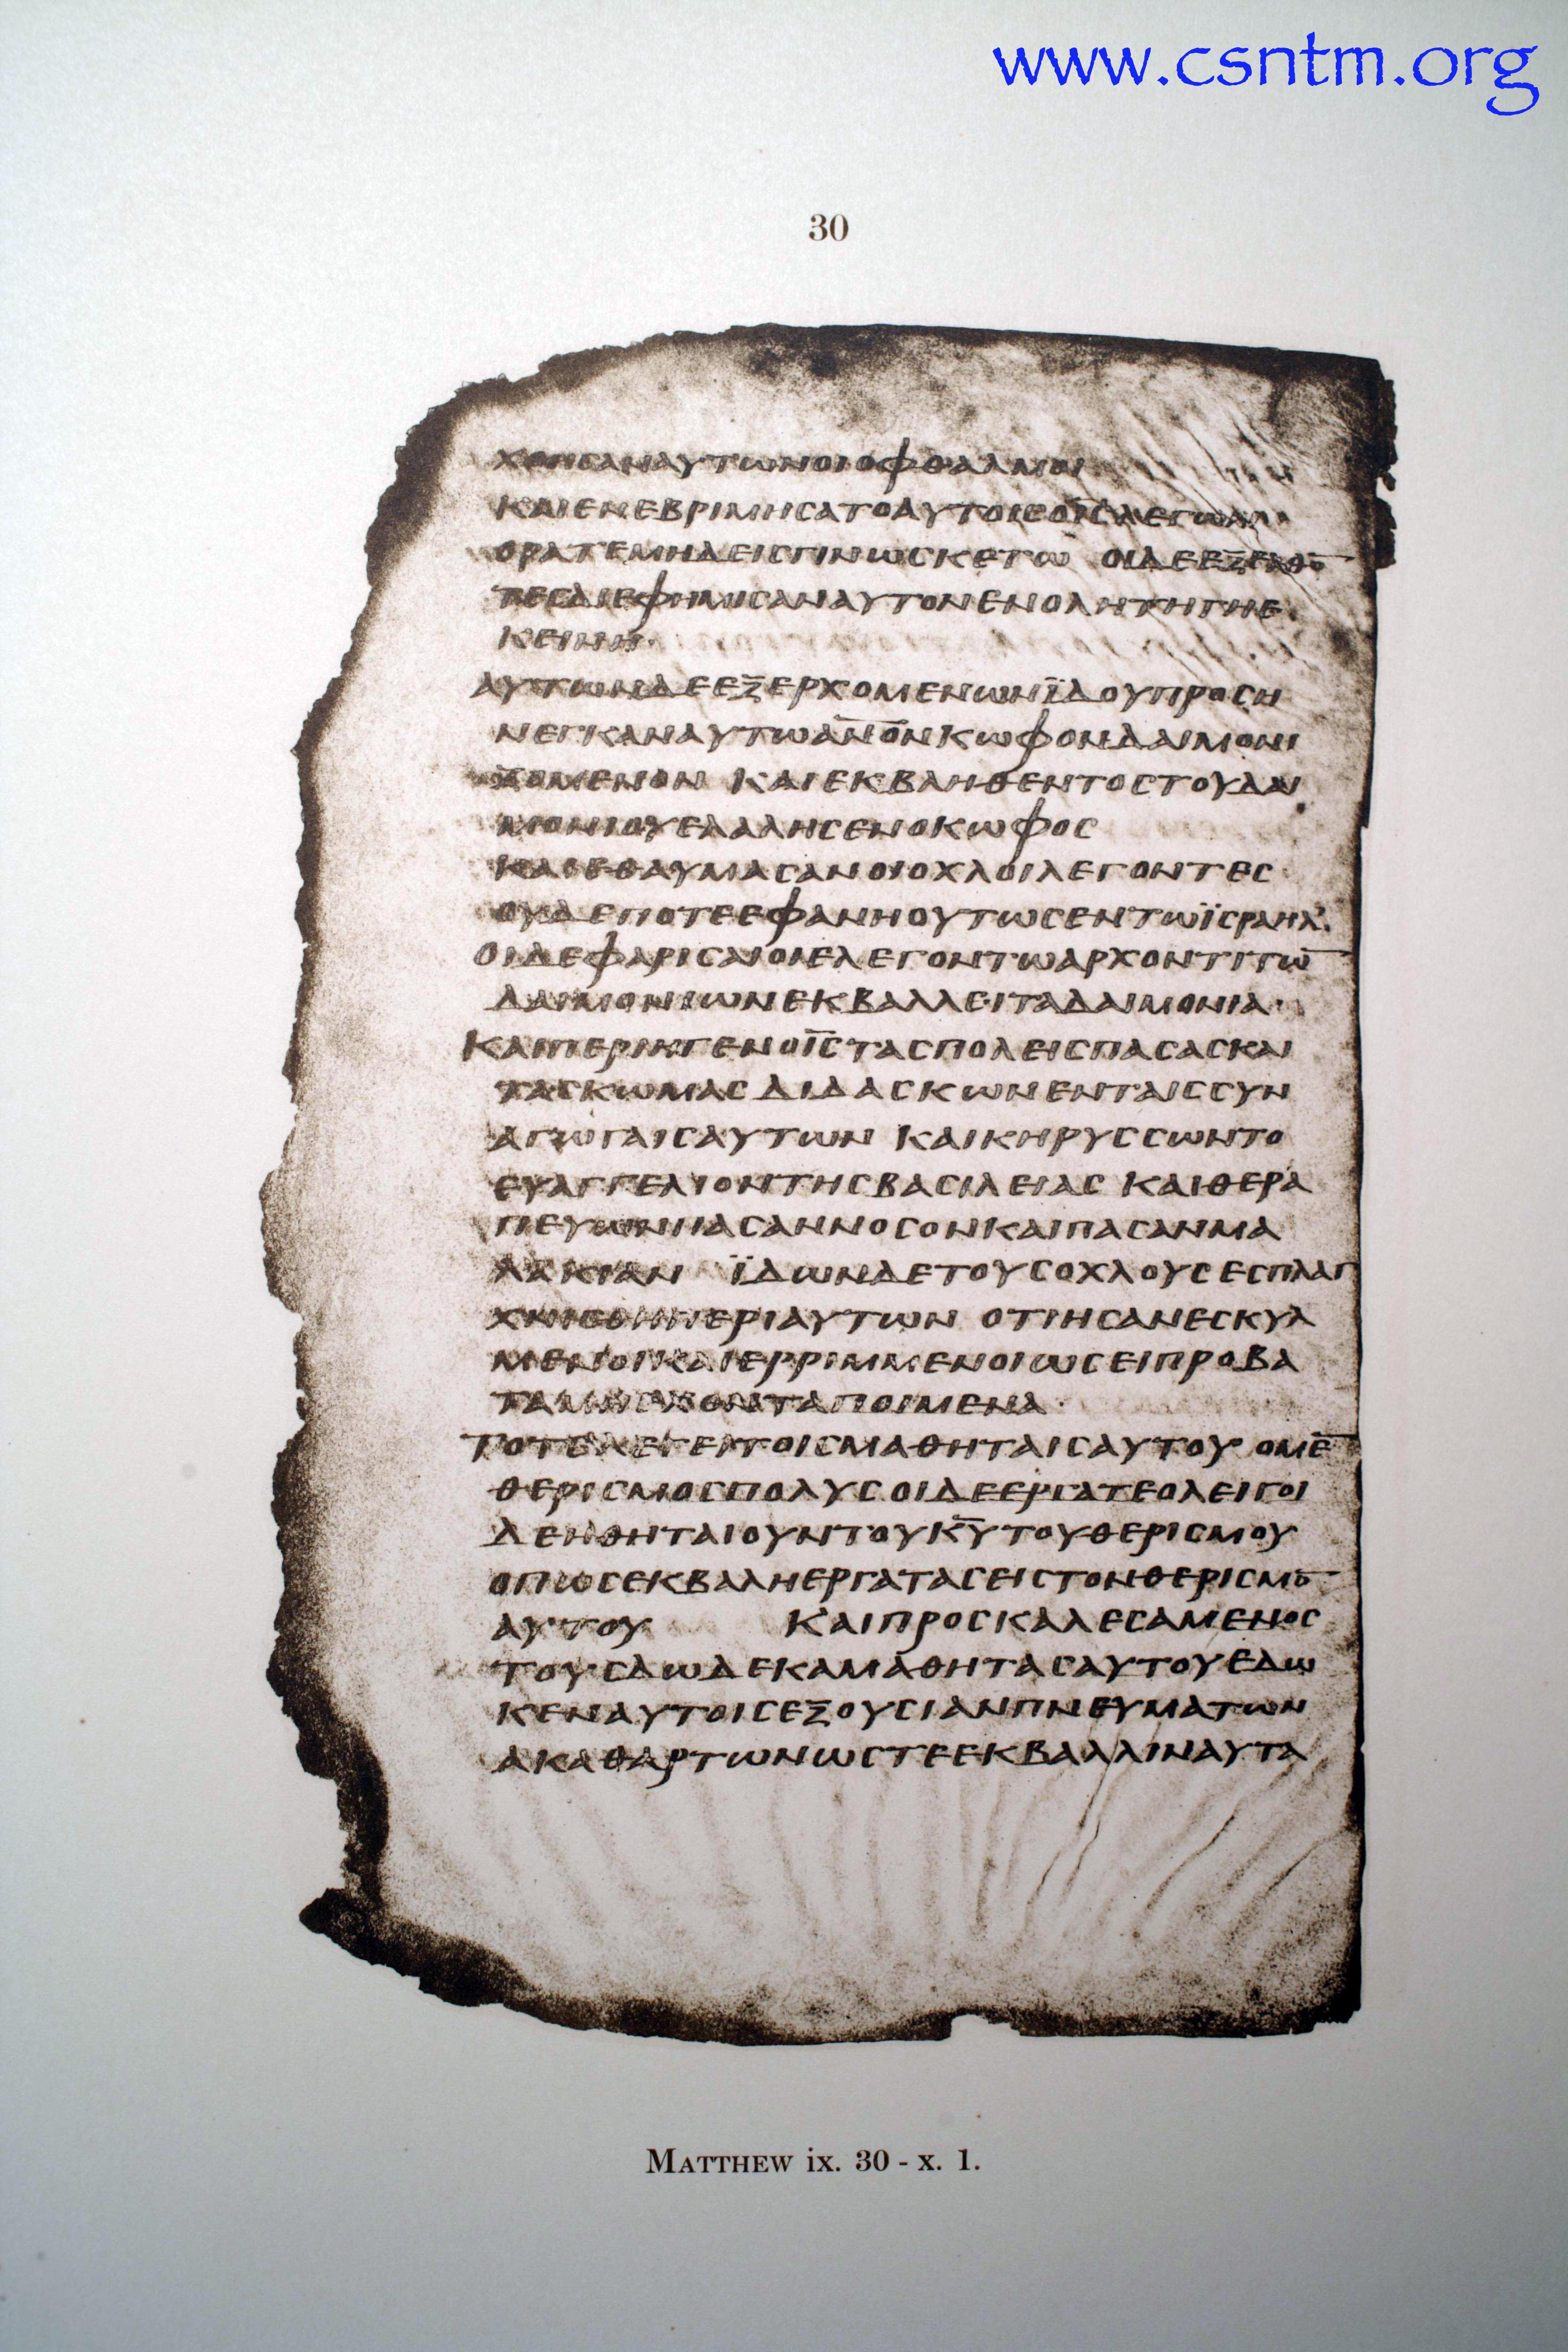 www.csntm.org
30
ΧΘΗϹΑΝΑΥΤΩΝΟΙΟΦΘΑΛΜΟΙ
ΚΑΙΕΝΕΒΡΙΜΗϹΑΤΟΑΥΤΟΙϹΟΙ̅Ϲ̅ΛΕΓΩΝ
ΟΡΑΤΕΜΗΔΕΙϹΓΙΝΩϹΚΕΤΩ ΟΙΔΕΕΞΕΛΘΟ̅
ΤΕϹΔΙΕΦΗΜΙϹΑΝΑΥΤΟΝΕΝΟΛΗΤΗΓΗΕ
ΚΕΙΝΗ·
ΑΥΤΩΝΔΕΕΞΕΡΧΟΜΕΝΩΝΪΔΟΥΠΡΟϹΗ
ΝΕΓΚΑΝΑΥΤΩΑ̅Ν̅Ο̅Ν̅ΚΩΦΟΝΔΑΙΜΟΝΙ
ΖΟΜΕΝΟΝ ΚΑΙΕΚΒΛΗΘΕΝΤΟϹΤΟΥΔΑΙ
ΜΟΝΙΟΥΕΛΑΛΗϹΕΝΟΚΩΦΟϹ
ΚΑΙΕΘΑΥΜΑϹΑΝΟΙΟΧΛΟΙΛΕΓΟΝΤΕϹ·
ΟΥΔΕΠΟΤΕΕΦΑΝΗΟΥΤΩϹΕΝΤΩΪϹΡΑΗΛ·
ΟΙΔΕΦΑΡΙϹΑΙΟΙΕΛΕΓΟΝΤΩΑΡΧΟΝΤΙΤΩ̅
ΔΑΙΜΟΝΙΩΝΕΚΒΑΛΛΕΙΤΑΔΑΙΜΟΝΙΑ·
ΚΑΙΠΕΡΙΗΓΕΝΟΙ̅Ϲ̅ΤΑϹΠΟΛΕΙϹΠΑϹΑϹΚΑΙ
ΤΑϹΚΩΜΑϹΔΙΔΑϹΚΩΝΕΝΤΑΙϹϹΥΝ
ΑΓΩΓΑΙϹΑΥΤΩΝ ΚΑΙΚΗΡΥϹϹΩΝΤΟ
ΕΥΑΓΓΕΛΙΟΝΤΗϹΒΑϹΙΛΕΙΑϹ ΚΑΙΘΕΡΑ
ΠΕΥΩΝΠΑϹΑΝΝΟϹΟΝΚΑΙΠΑϹΑΝΜΑ
ΛΑΚΙΑΝ ΪΔΩΝΔΕΤΟΥϹΟΧΛΟΥϹΕϹΠΛΑΓ
ΧΝΙϹΘΗΠΕΡΙΑΥΤΩΝ ΟΤΙΗϹΑΝΕϹΚΥΛ
ΜΕΝΟΙΚΑΙΕΡΡΙΜΜΕΝΟΙΩϹΕΙΠΡΟΒΑ
ΤΑΜΗΕΧΟΝΤΑΠΟΙΜΕΝΑ·
ΤΟΤΕΛΕΓΕΙΤΟΙϹΜΑΘΗΤΑΙϹΑΥΤΟΥ ΟΜΕ̅
ΘΕΡΙϹΜΟϹΠΟΛΥϹΟΙΔΕΕΡΓΑΤΕΟΛΕΙΓΟΙ
ΔΕΗΘΗΤΑΙΟΥΝΤΟΥΚ̅Υ̅ΤΟΥΘΕΡΙϹΜΟΥ
ΟΠΩϹΕΚΒΑΛΗΕΡΓΑΤΑϹΕΙϹΤΟΝΘΕΡΙϹΜΟ̅
ΑΥΤΟΥ ΚΑΙΠΡΟϹΚΑΛΕϹΑΜΕΝΟϹ
ΤΟΥϹΔΩΔΕΚΑΜΑΘΗΤΑϹΑΥΤΟΥΕΔΩ
ΚΕΝΑΥΤΟΙϹΕΞΟΥϹΙΑΝΠΝΕΥΜΑΤΩΝ
ΑΚΑΘΑΡΤΩΝΩϹΤΕΕΚΒΑΛΛΙΝΑΥΤΑ
MATTHEW ix. 30 - x. 1.